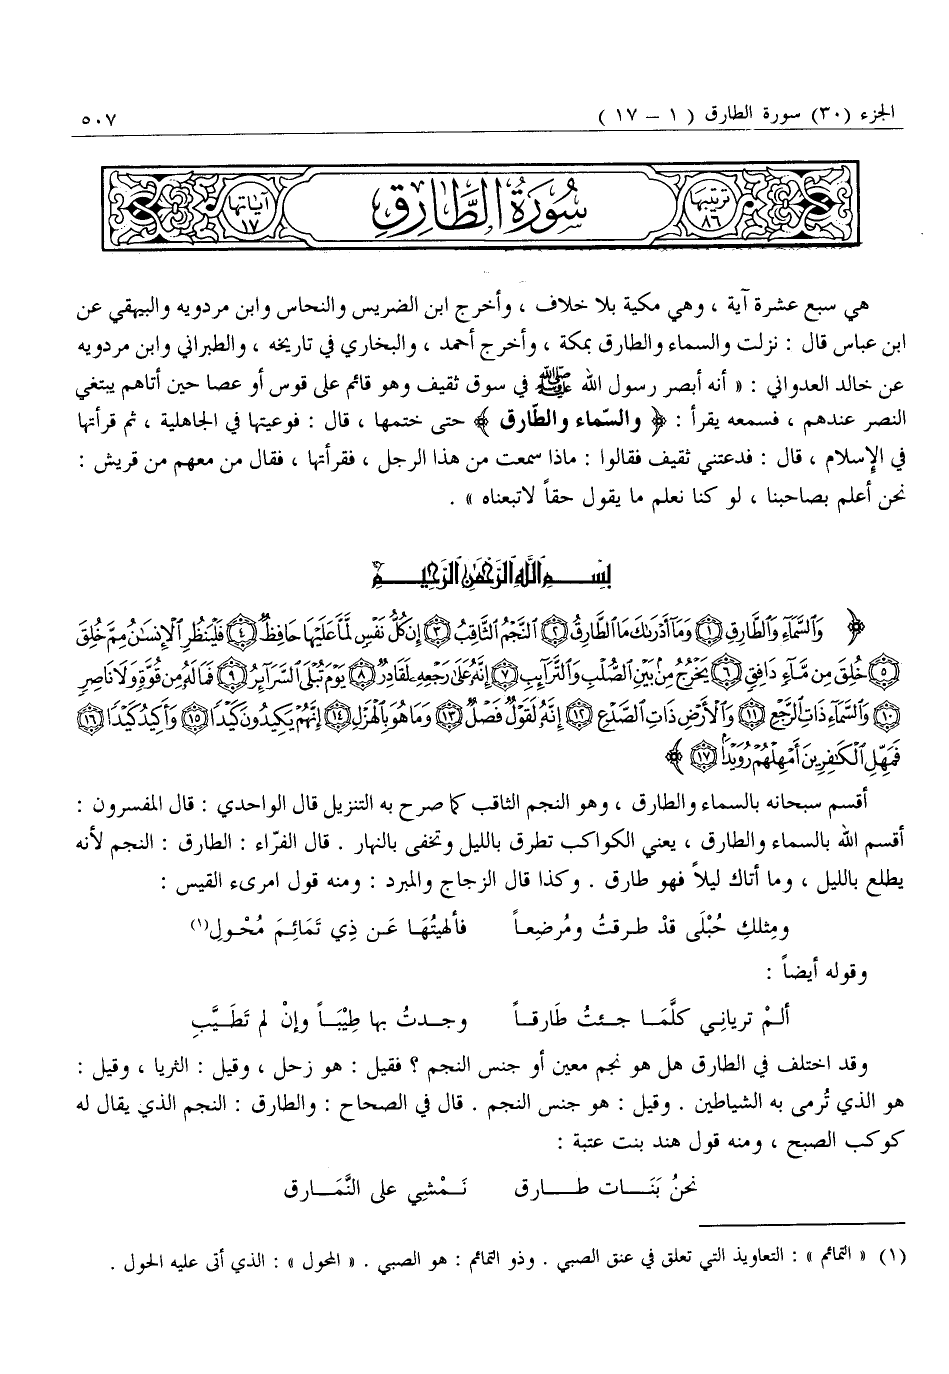 الجزء (٣٠) سورة الطارق ( ١ – ١٧ ) ٥٠٧
ترتيبها ٨٦ سُورَةُ الطَّارِقِ آياتها ١٧
هي سبع عشرة آية ، وهي مكية بلا خلاف ، وأخرج ابن الضريس والنحاس وابن مردويه والبيهقي عن
ابن عباس قال : نزلت والسماء والطارق بمكة ، وأخرج أحمد ، والبخاري في تاريخه ، والطبراني وابن مردويه
عن خالد العدواني : « أنه أبصر رسول الله ﷺ في سوق ثقيف وهو قائم على قوس أو عصا حين أتاهم يبتغي
النصر عندهم ، فسمعه يقرأ : ﴿ والسّماء والطّارق ﴾ حتى ختمها ، قال : فوعيتها في الجاهلية ، ثم قرأتها
في الإسلام ، قال : فدعتني ثقيف فقالوا : ماذا سمعت من هذا الرجل ، فقرأتها ، فقال من معهم من قريش :
نحن أعلم بصاحبنا ، لو كنا نعلم ما يقول حقاً لاتبعناه » .
بِسْمِ ٱللَّهِ ٱلرَّحْمَٰنِ ٱلرَّحِيمِ
﴿ وَٱلسَّمَآءِ وَٱلطَّارِقِ ١ وَمَآ أَدْرَىٰكَ مَا ٱلطَّارِقُ ٢ ٱلنَّجْمُ ٱلثَّاقِبُ ٣ إِن كُلُّ نَفْسٍ لَّمَّا عَلَيْهَا حَافِظٌ ٤ فَلْيَنظُرِ ٱلْإِنسَٰنُ مِمَّ خُلِقَ
٥ خُلِقَ مِن مَّآءٍ دَافِقٍ ٦ يَخْرُجُ مِنۢ بَيْنِ ٱلصُّلْبِ وَٱلتَّرَآئِبِ ٧ إِنَّهُۥ عَلَىٰ رَجْعِهِۦ لَقَادِرٌ ٨ يَوْمَ تُبْلَى ٱلسَّرَآئِرُ ٩ فَمَا لَهُۥ مِن قُوَّةٍ وَلَا نَاصِرٍ
١٠ وَٱلسَّمَآءِ ذَاتِ ٱلرَّجْعِ ١١ وَٱلْأَرْضِ ذَاتِ ٱلصَّدْعِ ١٢ إِنَّهُۥ لَقَوْلٌ فَصْلٌ ١٣ وَمَا هُوَ بِٱلْهَزْلِ ١٤ إِنَّهُمْ يَكِيدُونَ كَيْدًا ١٥ وَأَكِيدُ كَيْدًا ١٦
فَمَهِّلِ ٱلْكَٰفِرِينَ أَمْهِلْهُمْ رُوَيْدًۢا ١٧ ﴾
أقسم سبحانه بالسماء والطارق ، وهو النجم الثاقب كما صرح به التنزيل قال الواحدي : قال المفسرون :
أقسم الله بالسماء والطارق ، يعني الكواكب تطرق بالليل وتخفى بالنهار . قال الفرّاء : الطارق : النجم لأنه
يطلع بالليل ، وما أتاك ليلاً فهو طارق . وكذا قال الزجاج والمبرد : ومنه قول امرىء القيس :
ومِثلكِ حُبْلَى قدْ طرقتُ ومُرضِعاً فألهيتُهَا عَن ذِي تَمَائِمَ مُحْولِ(١)
وقوله أيضاً :
ألمْ تريانِي كلَّمَا جئتُ طَارقاً وجدتُ بها طِيْبَاً وإنْ لم تَطَيَّبِ
وقد اختلف في الطارق هل هو نجم معين أو جنس النجم ؟ فقيل : هو زحل ، وقيل : الثريا ، وقيل :
هو الذي تُرمى به الشياطين . وقيل : هو جنس النجم . قال في الصحاح : والطارق : النجم الذي يقال له
كوكب الصبح ، ومنه قول هند بنت عتبة :
نحنُ بَنَات طارق نَمْشِي على النَّمَارق
(١) « التمائم » : التعاويذ التي تعلق في عنق الصبي . وذو التمائم : هو الصبي . « المحول » : الذي أتى عليه الحول .